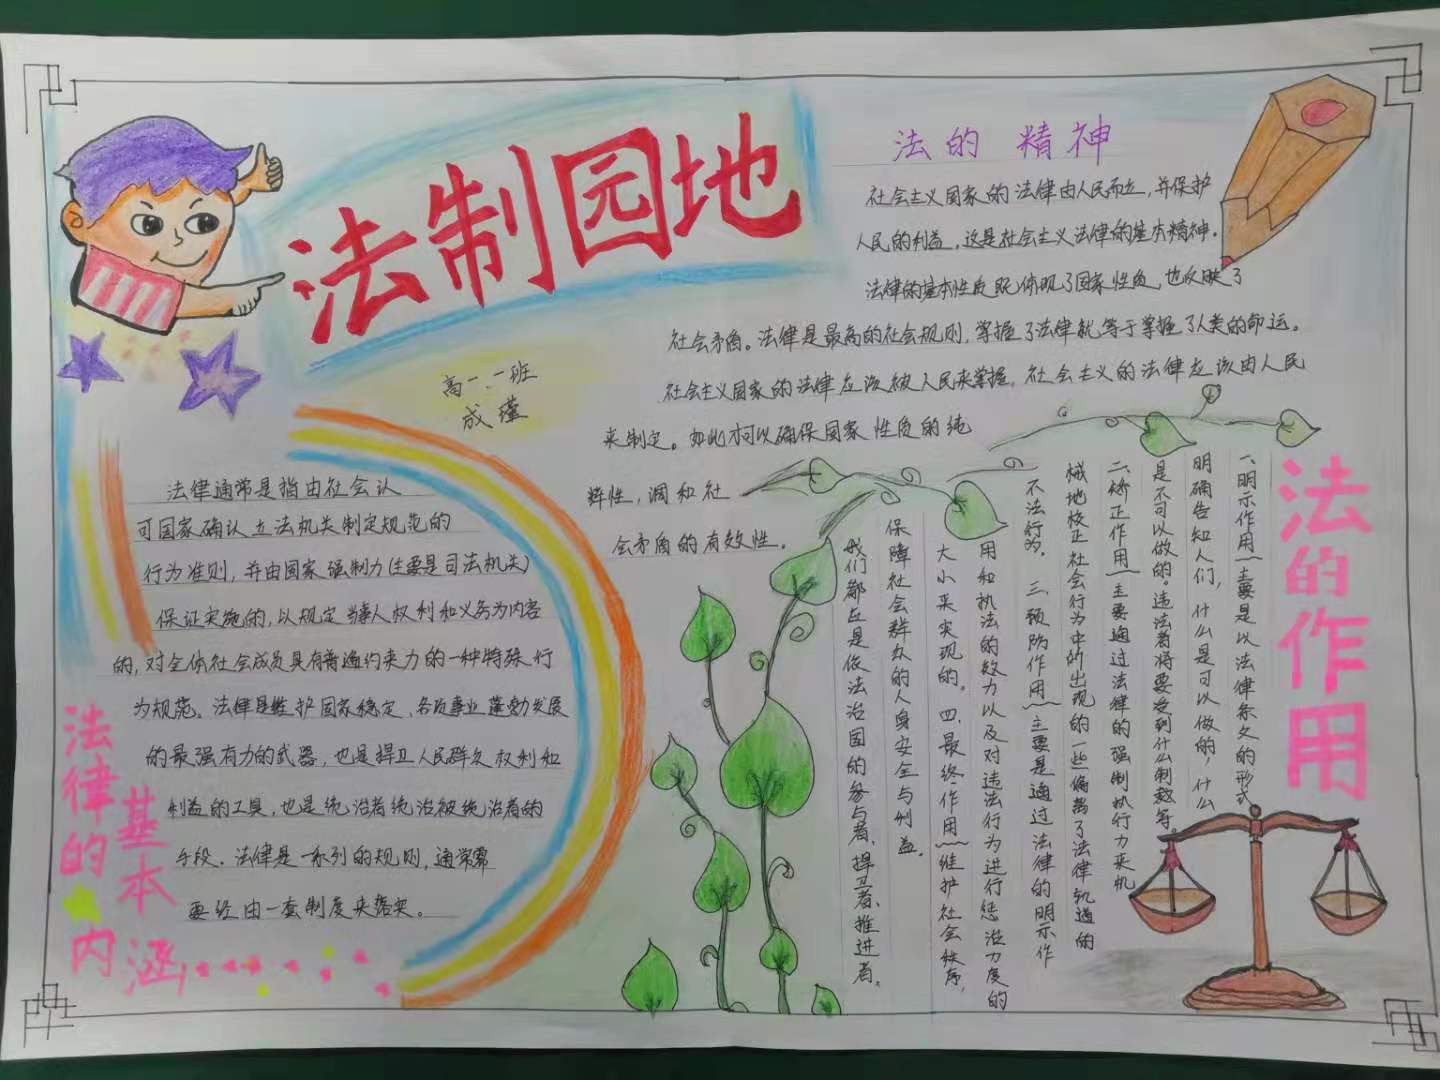 法制园地
高一.一班
成瑾
法的精神
社会主义国家的法律由人民而立,并保护
人民的利益,这是社会主义法律的基本精神.
法律的基本性质既体现了国家性质,也反映了
社会矛盾。法律是最高的社会规则,掌握了法律就等于掌握了人类的命运。
社会主义国家的法律应该被人民来掌握,社会主义的法律应该由人民
来制定。如此才可以确保国家性质的纯
粹性,调和社
会矛盾的有效性。
法律的基本内涵
法律通常是指由社会认
可国家确认立法机关制定规范的
行为准则,并由国家强制力(主要是司法机关)
保证实施的,以规定当事人权利和义务为内容
的,对全体社会成员具有普遍约束力的一种特殊行
为规范。法律是维护国家稳定,各项事业蓬勃发展
的最强有力的武器,也是捍卫人民群众权利和
利益的工具,也是统治者统治被统治者的
手段.法律是一系列的规则,通常需
要经由一套制度来落实。
法的作用
一、明示作用(主要是以法律条文的形式
明确告知人们,什么是可以做的,什么
是不可以做的。违法者将要受到什么制裁等。
二、矫正作用(主要通过法律的强制执行力来机
械地校正社会行为中所出现的一些偏离了法律轨道的
不法行为.三、预防作用(主要是通过法律的明示作
用和执法的效力以及对违法行为进行惩治力度的
大小来实现的。四、最终作用(维护社会秩序,
保障社会群众的人身安全与利益。
我们都应是依法治国的参与者、捍卫者、推进者。